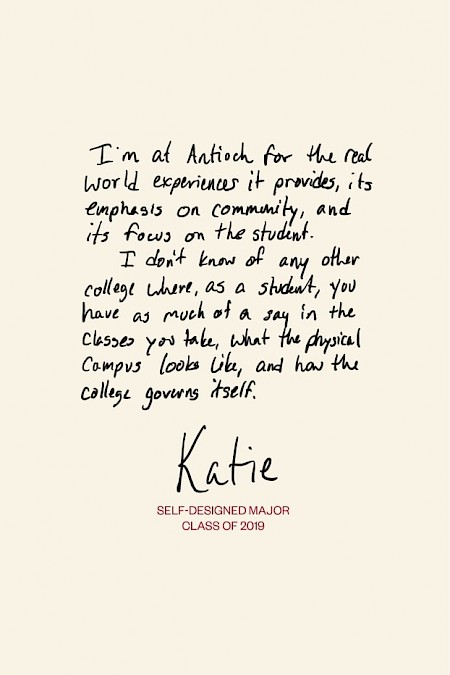 I'm at Antioch for the real
world experiences it provides, its
emphasis on community, and
its focus on the student.
I don't know of any other
college where, as a student, you
have as much of a say in the
classes you take, what the physical
campus looks like, and how the
college governs itself.
Katie
SELF-DESIGNED MAJOR
CLASS OF 2019